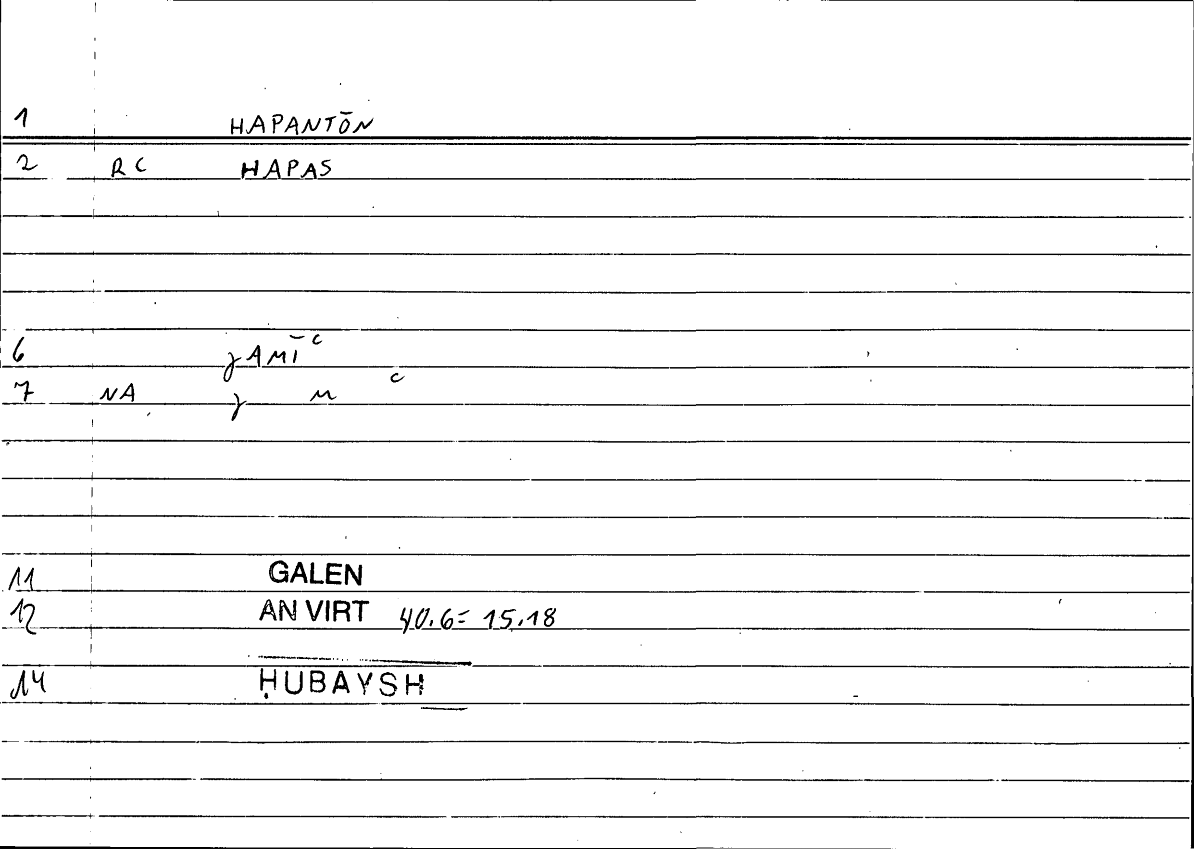 1 HAPANTŌN
2 RC HAPAS
6 ʒAMĪᶜ
7 NA ʒ M ᶜ
11 GALEN
12 AN VIRT 40.6= 15.18
14 ḤUBAYSH